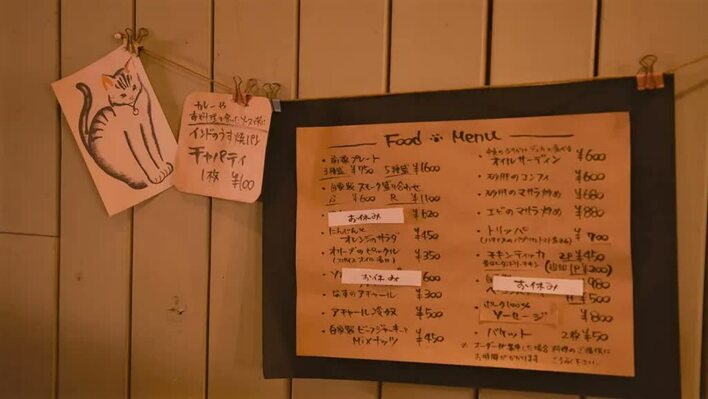 カレーや
インドのうす焼パン
チャパティ
1枚 ¥100
Food Menu
・前菜プレート
3種盛 ¥950 5種盛 ¥1600
・自家製 スモーク盛り合わせ
¥600 R ¥1100
お休み ¥620
・にんじんと
オレンジのサラダ ¥450
・オリーブのピックル ¥350
お休み 600
・なすのアチャール ¥300
・アチャール冷奴 ¥500
・自家製 ビーフジャーキーと
Mixナッツ ¥450
オイルサーディン ¥600
・砂肝のコンフィ ¥600
・砂肝のマサラ炒め ¥680
・エビのマサラ炒め ¥880
・トリッパ ¥700
・チキンティッカ 2P ¥450
1P ¥200)
お休み 980
¥500
ソーセージ ¥800
・バケット 2枚 ¥50
※ オーダーが集中した場合 料理のご提供に
お時間がかかります